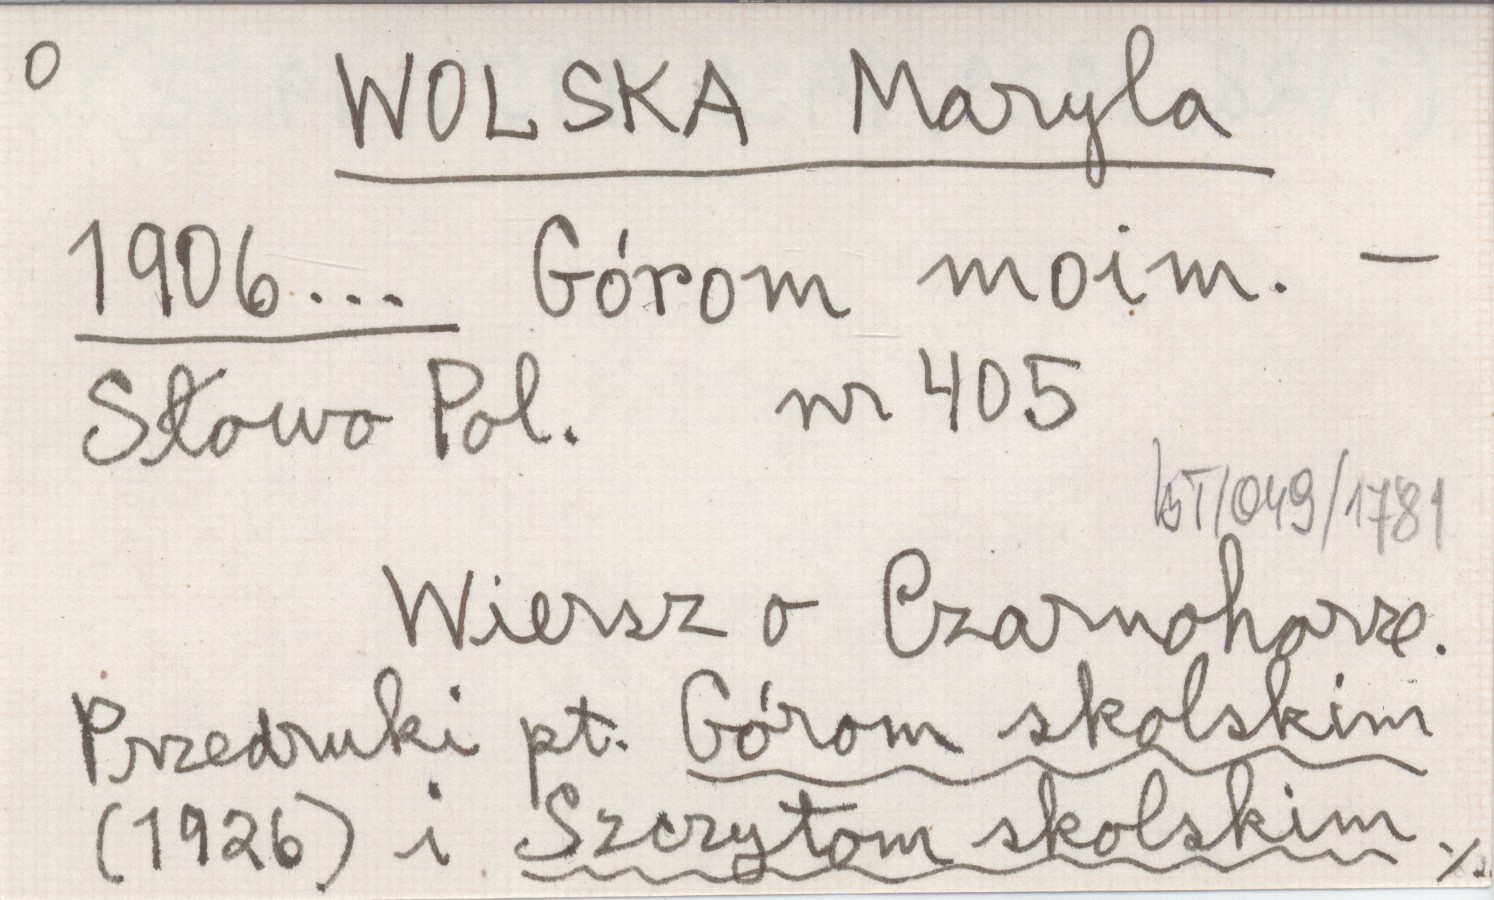 0 WOLSKA Maryla
1906... Górom moim. —
Słowo Pol. nr 405
KST/049/1781
Wiersz o Czarnohorze.
Przedruki pt. Górom skolskim
(1926) i Szczytom skolskim